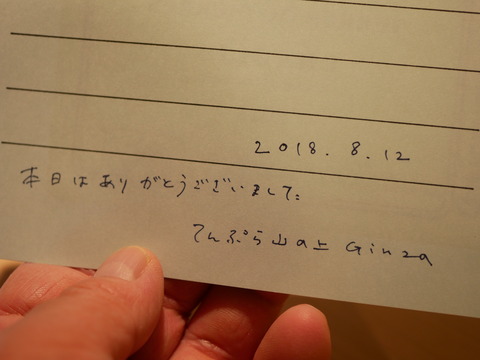 2018.8.12
本日はありがとうございまして。
てんぷら山の上 Ginza